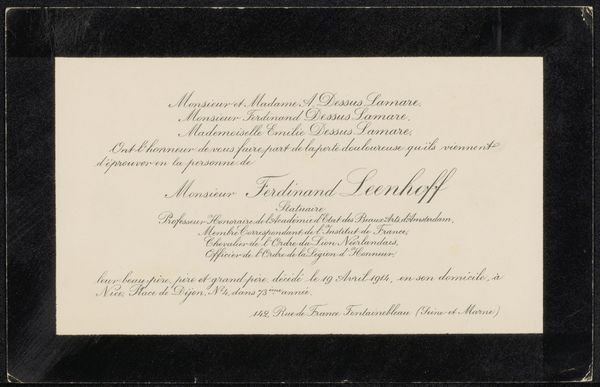 Monsieur et Madame A. Dessus Lamare,
Monsieur Ferdinand Dessus Lamare,
Mademoiselle Emilie Dessus Lamare,
Ont l'honneur de vous faire part de la perte douloureuse qu'ils viennent
d'éprouver en la personne de
Monsieur Ferdinand Leenhoff
Statuaire
Professeur Honoraire de l'Académie d'Etat des Beaux-Arts d'Amsterdam,
Membre Correspondant de l'Institut de France,
Chevalier de l'Ordre du Lion Néerlandais,
Officier de l'Ordre de la Légion d'Honneur,
leur beau-père, père et grand-père, décédé le 19 Avril 1914, en son domicile, à
Nice, Place de Dijon, N°4, dans 73ème année.
142, Rue de France, Fontainebleau (Seine et Marne)